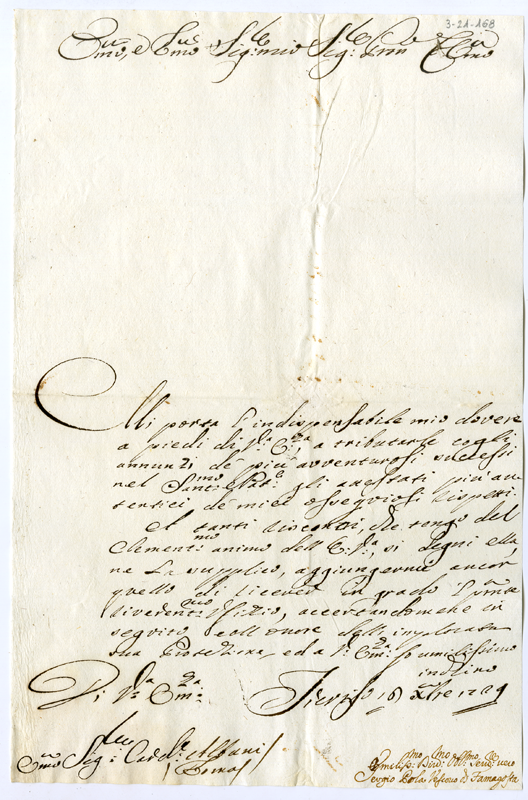 3-21-168
Emo, e Rmo Sig: mio Sig: Pron Colmo
Mi porta l'indispensabile mio dovere
a piedi di V.ra Em.za, a tributarle cogli
annunzi de più avventurosi successi
nel Sant.mo Natale gli attestati più au-
tentici de miei ossequiosi rispetti.
E tanti riscontri, che tengo del
Clement.mo animo dell'E. V.ra, si degni ella,
ne La supplico, aggiungermi ancor
quello di ricever in grado
riverent.mo Offizio, accertandomene in
seguito coll'onore dell'implorata
sua Protezione, ed a V.ra Em.za umilissimo
inchino
Di V.ra Em.za
Treviso 18 Xbre 1729
Emo Sig: Card.le Albani
Roma
Umilis.mo Dev.mo Obb.mo Serv.re vero
Vescovo di Famagosta